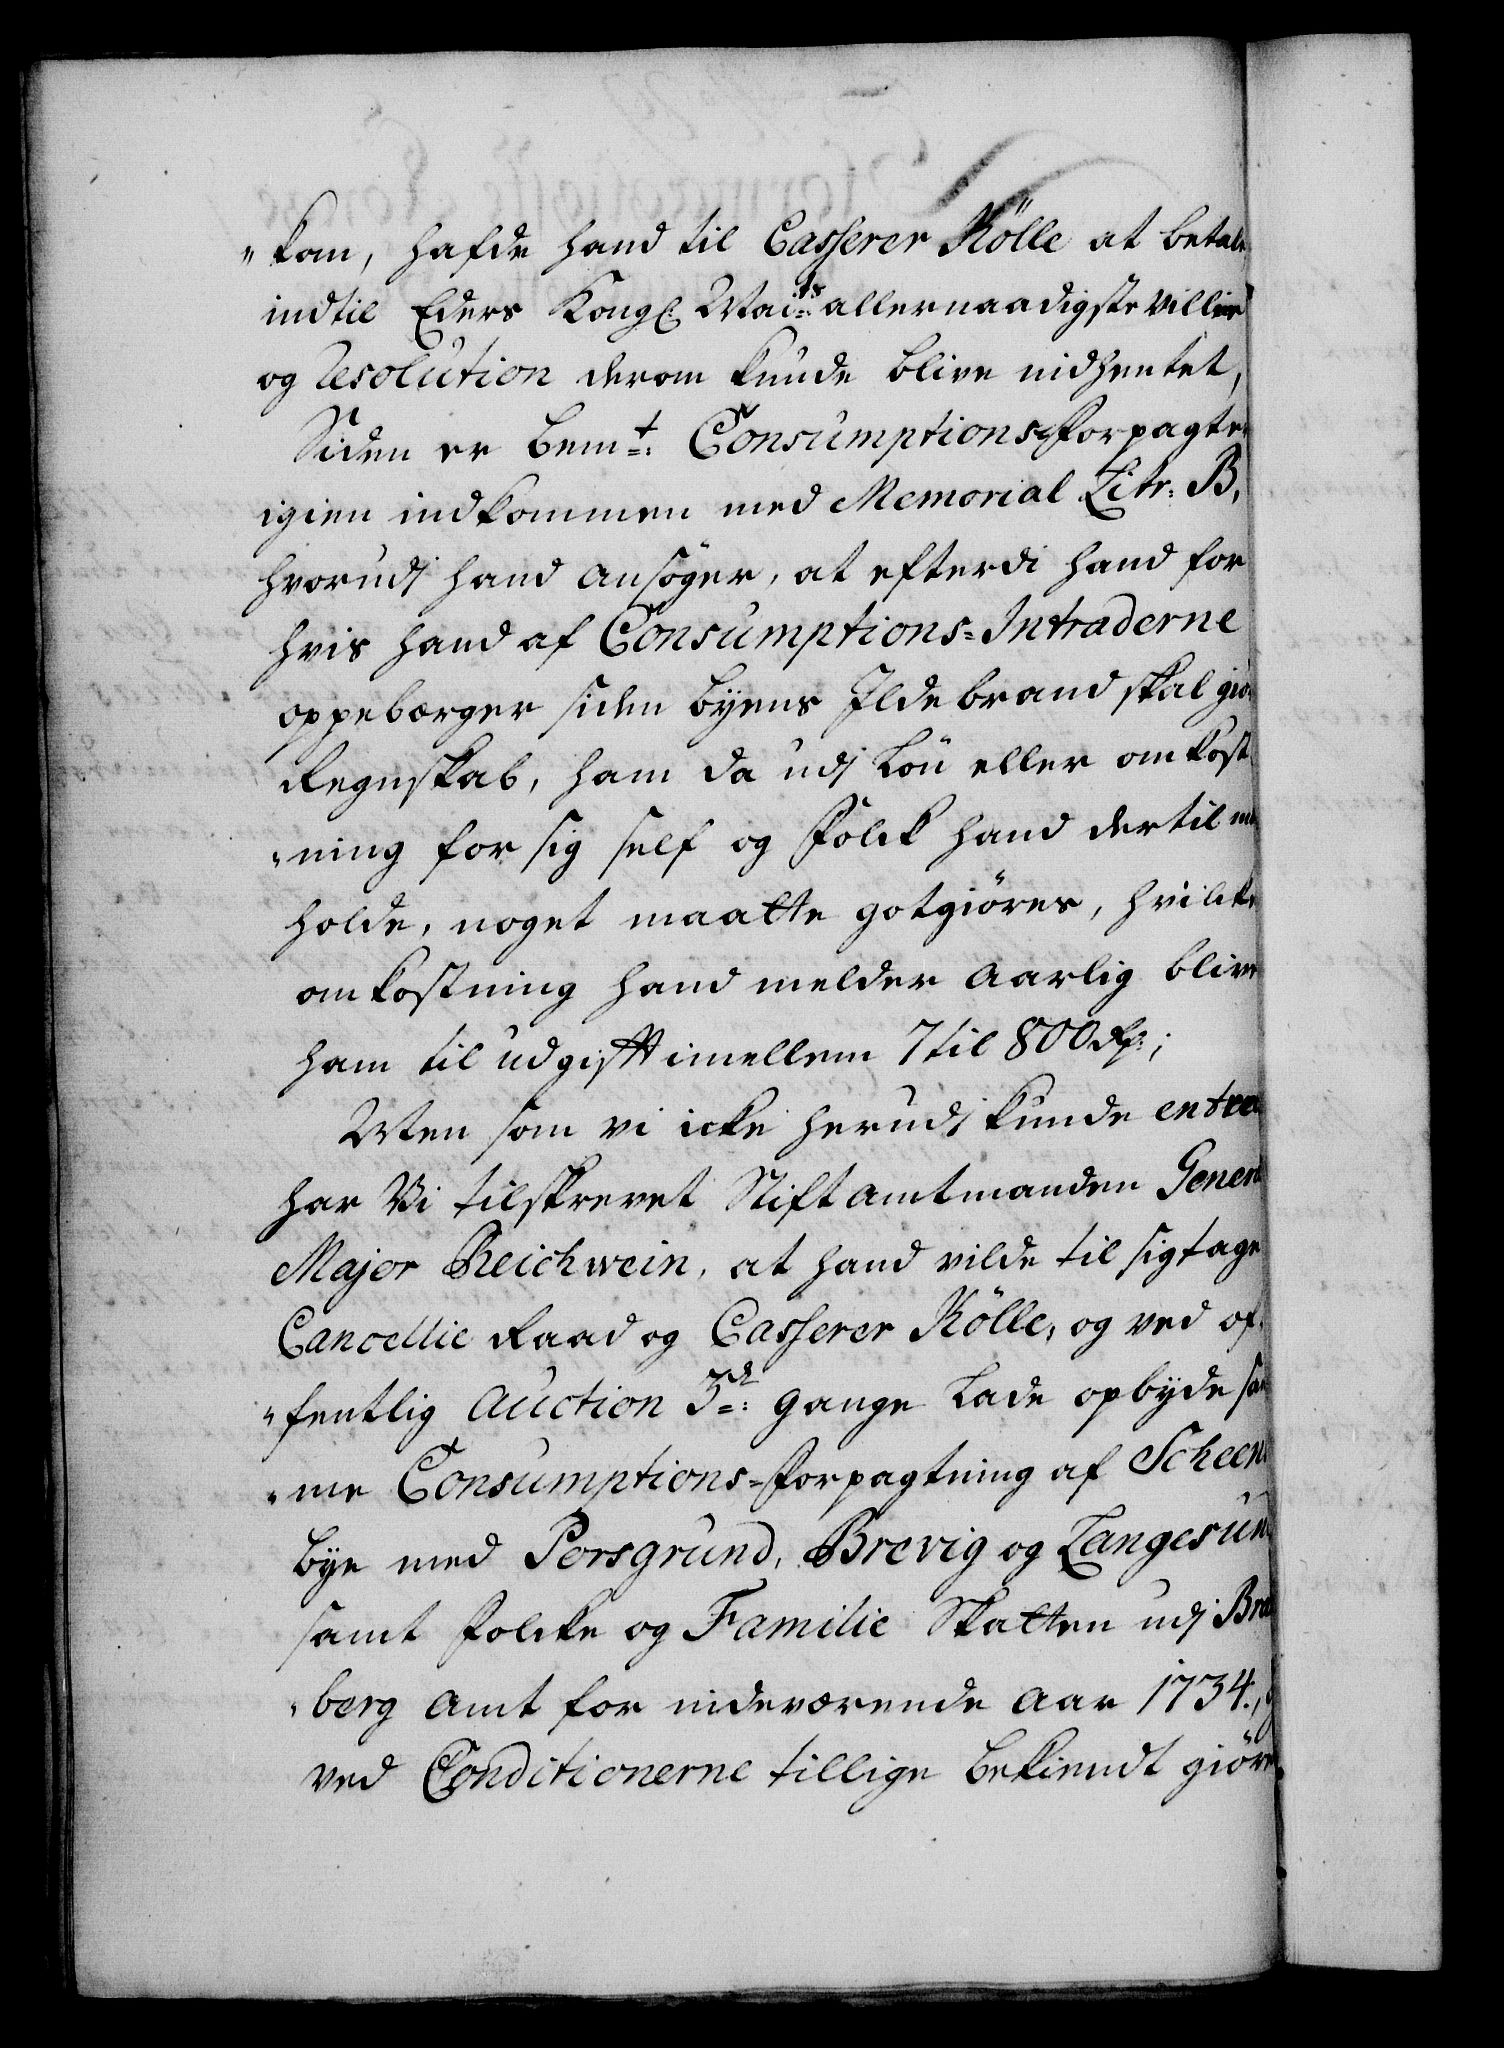 "kom, hafde hand til Casserer Kölle at betale
indtil Eders Kongl: Mai:ts allernaadigste Villie
og Resolution derom kunde blive indhentet,
Siden er bem:t Consumptions-Forpagter
igien indkommen med Memorial Litr: B,
hvorudi hand ansöger, at efterdi hand for
hvis hand af Consumptions-Intraderne
oppebærger siden byens Ildebrand skal giö-
Regnskab, ham da udi Lön eller omkost-
"ning for sig self og Folck hand dertil
holde, noget maatte gotgiöres, hvilcke
omkostning hand melder aarlig blive
ham til udgifft imellem 7 til 800 Rd:;
Men som vi icke herudi kunde
har Vi tilskrevet Stiftamtmanden General
Major Reichwein, at hand vilde til sig tage
Cancellie Raad og Casserer Kölle, og ved of-
"fentlig Auction 3de: gange lade opbyde sam-
"me Consumptions-Forpagtning af Scheens
bye med Porsgrund, Brevig og Langesund
samt Folcke og Familie Skatten udi Brats-
"berg amt for indeværende aar 1734.,
ved Conditionerne tillige bekiendt giöre